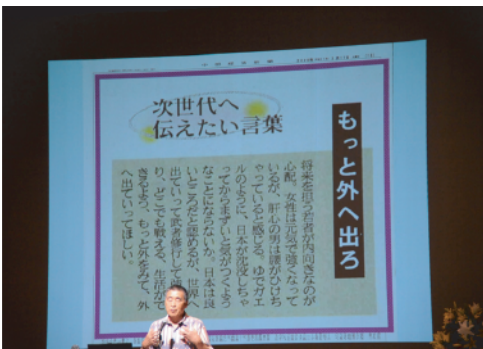 次世代へ
伝えたい言葉
もっと外へ出ろ
将来を担う若者が内向きなのが
心配。女性は元気で強くなって
いるが、肝心の男は腰がひけち
ゃっていると感じる。ゆでガエ
ルのように、日本が沈没しちゃ
ってからまずいと気がつくよう
なことにならないか。日本は良
いところだと認めるが、世界へ
出ていって武者修行して
り、どこでも戦える、生活がで
きるよう、もっと外をみて、外
へ出ていってほしい。